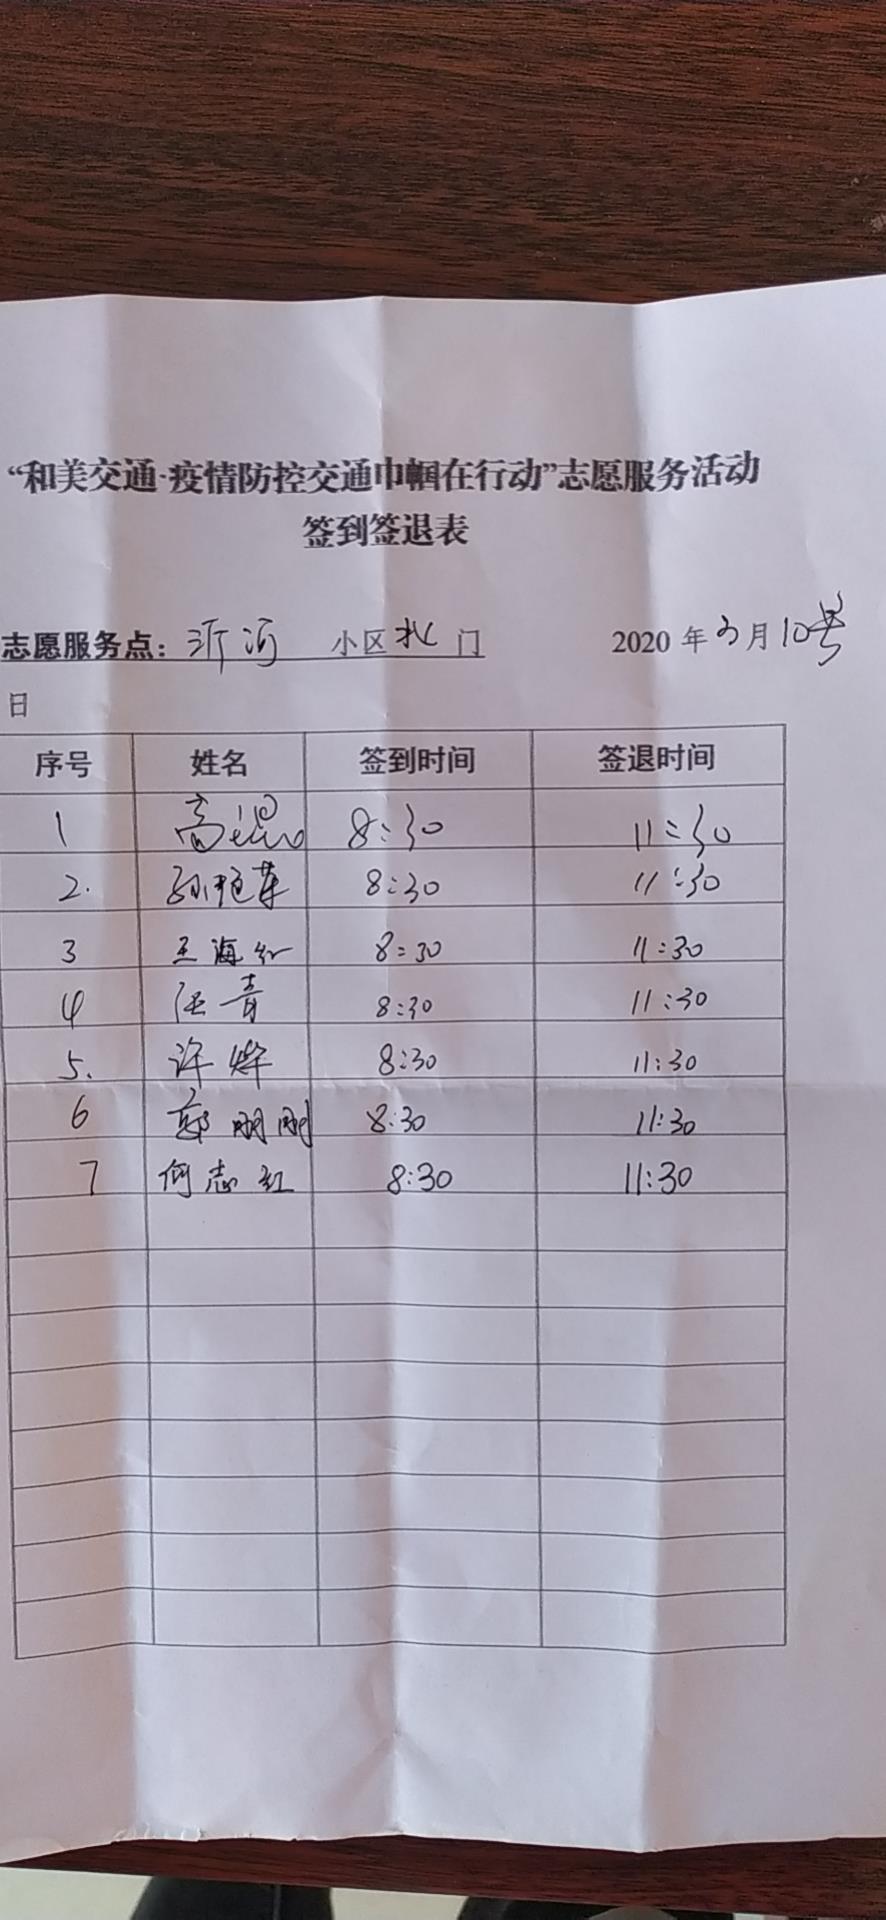 “和美交通·疫情防控交通巾帼在行动”志愿服务活动
签到签退表
志愿服务点：沂河 小区北门 2020年3月10号
日
序号 姓名 签到时间 签退时间
1 高 8:30 11:30
2. 孙艳华 8:30 11:30
3 王海红 8:30 11:30
4 汪青 8:30 11:30
5. 许烨 8:30 11:30
6 郭明明 8:30 11:30
7 何志红 8:30 11:30